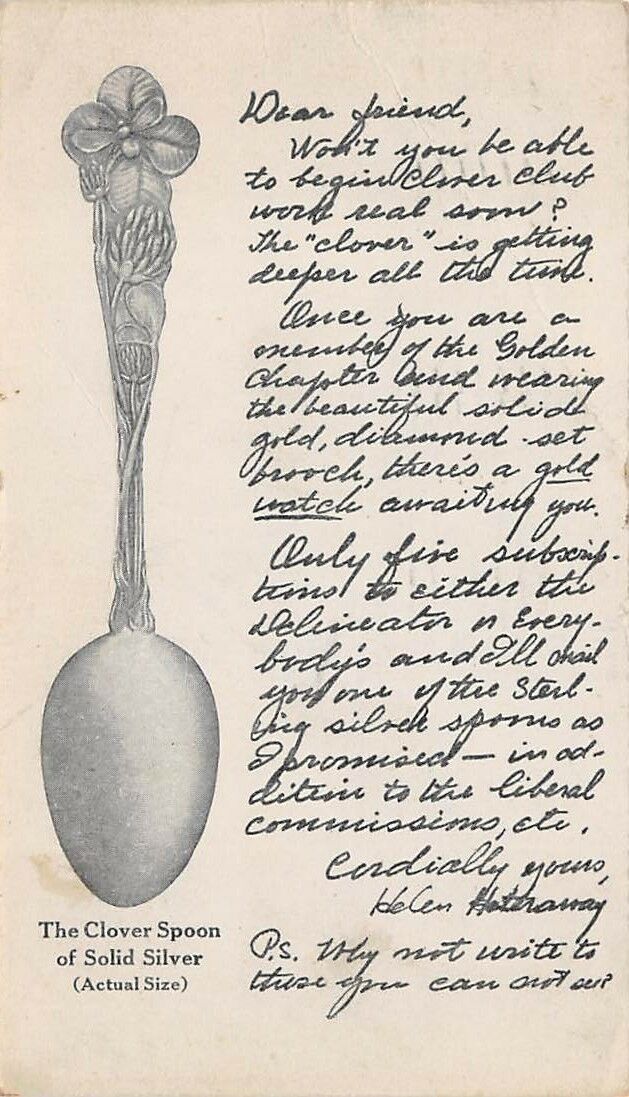 Dear friend,
Won't you be able
to begin Clover Club
work real soon?
The "clover" is getting
deeper all the time.
Once you are a
member of the Golden
Chapter and wearing
the beautiful solid
gold, diamond-set
brooch, there's a gold
watch awaiting you.
Only five subscrip-
tions to either the
Delineator or Every-
body's and I'll mail
you one of the Sterl-
ing silver spoons as
I promised — in ad-
dition to the liberal
commissions, etc.
Cordially yours,
Helen Hathaway
P.S. Why not write to
those you can not see?
The Clover Spoon
of Solid Silver
(Actual Size)